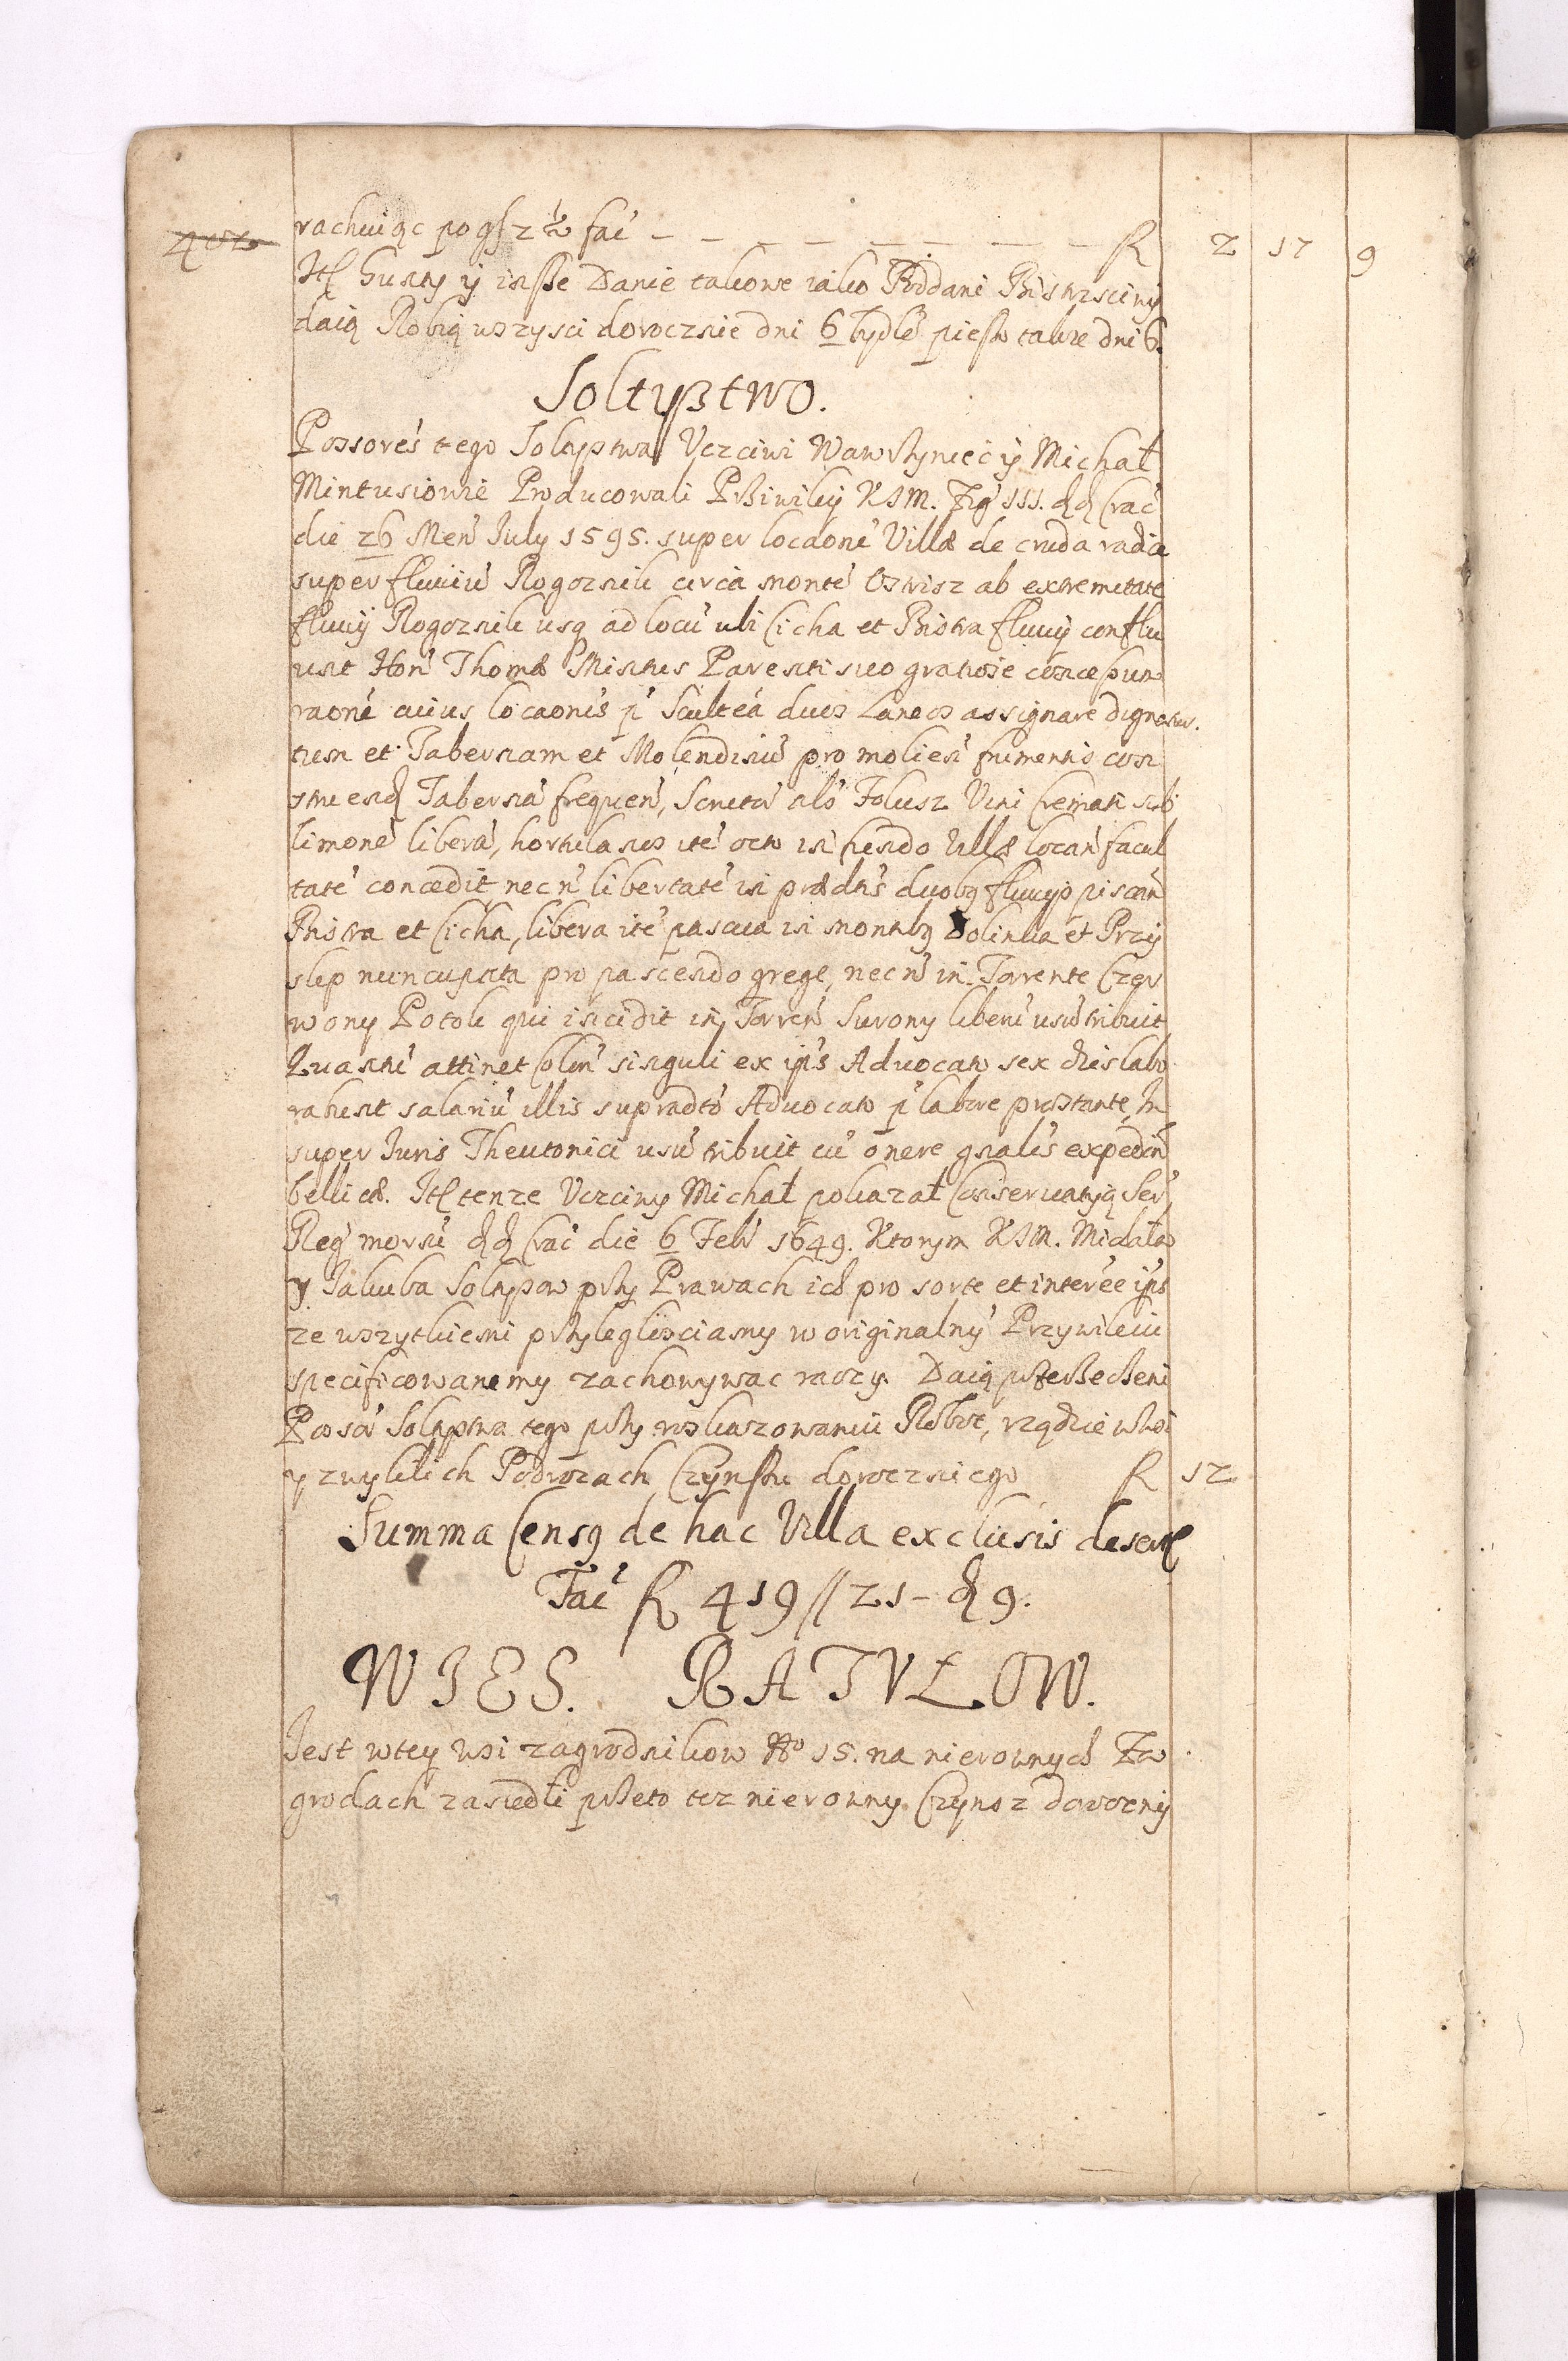 402
rachuiąc po gſ 2 fać — — — — — — — — R 2 17 9
Itē Gusty ÿ insſze Danie takowe iako Poddani Bistrzsciny
daią Robią wszysci dorocznie dni 6 bydłē pieszo takze dni 6.
Soltyſztwo.
Possorēs tego Soltystwa Uczciwi Wawrzyniec ÿ Michał
Mintusiowie Producowali Prziwiley KJM. Zyg̃ III. dd Crac̃
die 26 Men̄ July 1595. super locaōne Villæ de cruda radice
super fluviū Rogoznik circa montē Ostrisz ab extremitate
fluvÿ Rogoznik usq̨ ad locū ubi Cicha et Bistra fluvÿ conflu
unt Hon̄ Thomæ Mintus Parenti suo gratiose concessum
raōne cuius locaōnis p̄ Scultetia duos Laneos assignare dignatur.
tum et Tabernam et Molendinū pro molien̄ frumentis con
struend Tabernā frequen̄, Scruta alō Folusz Vini Cremati sub
limōne liberā, hortulanos itē octo in Chendo Villæ locan̄ facul
tatē concedit nec n̄ libertatē in prædtīs duobq̨ fluvys piscan̄
Bistra et Cicha, libera itē pascua in montibq̨ Dolinka et Przÿ
slep nuncupata pro pascendo grege, nec n̄ in Torrente Czer
wony Potok qui incidit in Torren̄ Surony liberū usū tribuit
Quantū attinet Colon̄ singuli ex ip̄s Advocato sex dies labo
rabunt salariū illis supradtō Advocato p̄ labore præstante, In
super Iuris Theutonici usū tribuit cū onere gnalīs expedn̄
bellicæ. Itē tenze Uczciwy Michał pokazał Conseruatyią Ser̄
Reg̃ morsū dd Crac̃ die 6 Feb̄ 1649. Ktorym KJM. Michała
y Jakuba Soltysow przy Prawach ich pro sorte et interēe ip̄s
ze wszytkiemi przyległosciamy w originalnỹ Przywileiu
specificowanemy zachowywac raczy. Daią przerzeczeni
Possō Soltystwa tego przy roskazowaniu Robot, rządzie w wsi
y zwyklich Podwozach Czynszu dorocznego R 12
Summa Censq̨ de hac Villa exclusis desertē
Fać R 419 // 21 – d 9.
WIES. RATVŁOW.
Jest w tey wsi zagrodnikow No 15. na nierownych Za
grodach zasiedli przeto tez nierowny Czynsz doroczny